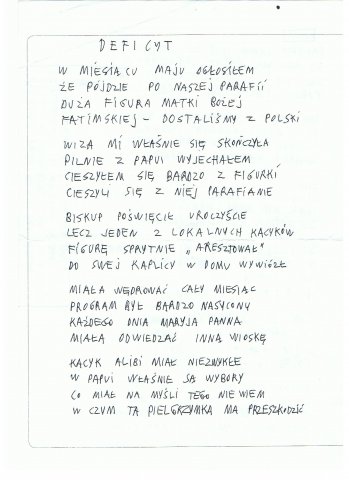 DEFICYT
W MIESIĄCU MAJU OGŁOSIŁEM
ŻE PÓJDZIE PO NASZEJ PARAFII
DUŻA FIGURA MATKI BOŻEJ
FATIMSKIEJ - DOSTALIŚMY Z POLSKI
WIZA MI WŁAŚNIE SIĘ SKOŃCZYŁA
PILNIE Z PAPUI WYJECHAŁEM
CIESZYŁEM SIĘ BARDZO Z FIGURKI
CIESZYLI SIĘ Z NIEJ PARAFIANIE
BISKUP POŚWIĘCIŁ UROCZYŚCIE
LECZ JEDEN Z LOKALNYCH KACYKÓW
FIGURĘ SPRYTNIE „ARESZTOWAŁ"
DO SWEJ KAPLICY W DOMU WYWIÓZŁ
MIAŁA WĘDROWAĆ CAŁY MIESIĄC
PROGRAM BYŁ BARDZO NASYCONY
KAŻDEGO DNIA MARYJA PANNA
MIAŁA ODWIEDZAĆ INNĄ WIOSKĘ
KACYK ALIBI MIAŁ NIEZWYKŁE
W PAPUI WŁAŚNIE SĄ WYBORY
CO MIAŁ NA MYŚLI TEGO NIE WIEM
W CZYM TA PIELGRZYMKA MA PRZESZKODZIĆ